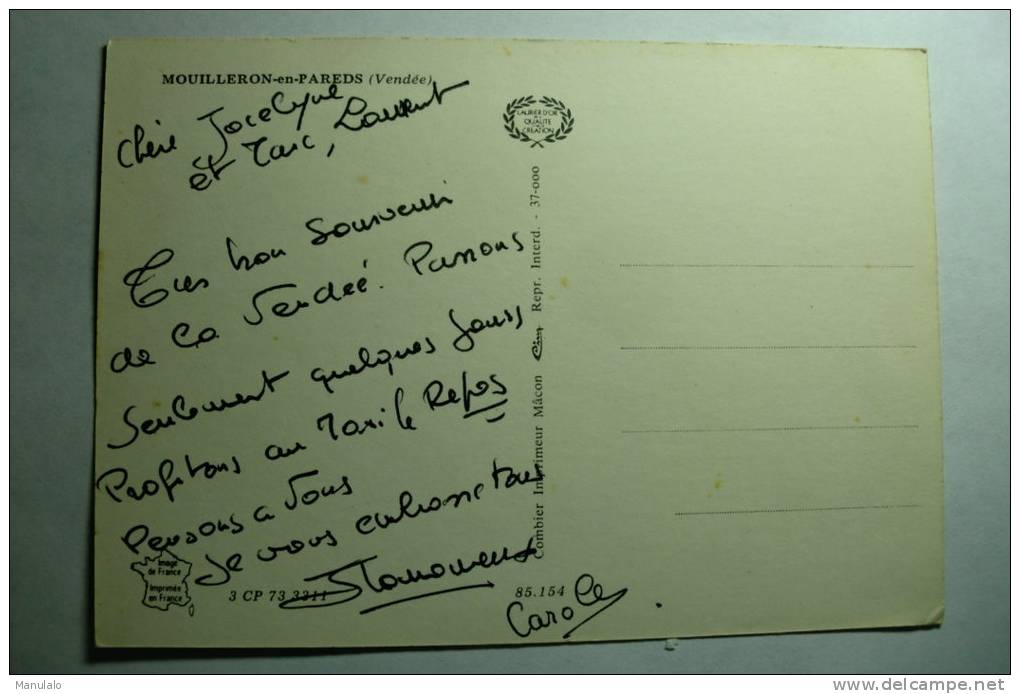 MOUILLERON-en-PAREDS (Vendée)
Chère Jocelyne
et Marc, Laurent
Très bon souvenir
de la Vendée. Passons
seulement quelques jours
Profitons au Maxi le Repos
Pensons a Vous
Je vous embrasse tous
Carole
LAURIER D'OR
DE LA
QUALITÉ
CRÉATION
Combier Imprimeur Mâcon Cim Repr. Interd. - 37-000
Image
de France
Imprimée
en France
3 CP 73 3311
85.154
Manulalo
www.delcampe.net